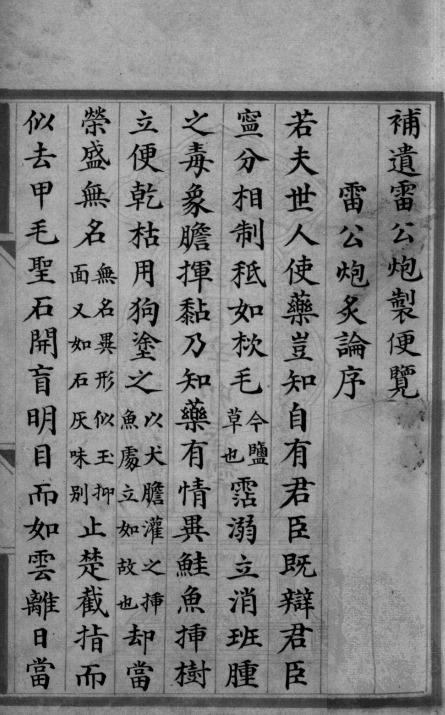 補遺雷公炮製便覽
雷公炮炙論序
若夫世人使藥豈知自有君臣既辯君臣
寍分相制秪如栨毛今鹽草也霑溺立消班腫
之毒象膽揮黏乃知藥有情異鮭魚揷樹
立便乾枯用狗塗之以犬膽灌之揷魚處立如故也却當
榮盛無名無名異形似玉抑面又如石灰味別止楚截指而
似去甲毛聖石開盲明目而如雲離日當